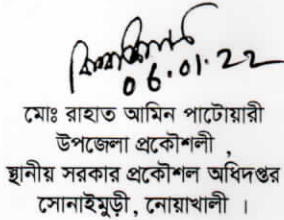 06.01.22
মোঃ রাহাত আমিন পাটোয়ারী
উপজেলা প্রকৌশলী ,
স্থানীয় সরকার প্রকৌশল অধিদপ্তর
সোনাইমুড়ী , নোয়াখালী ।